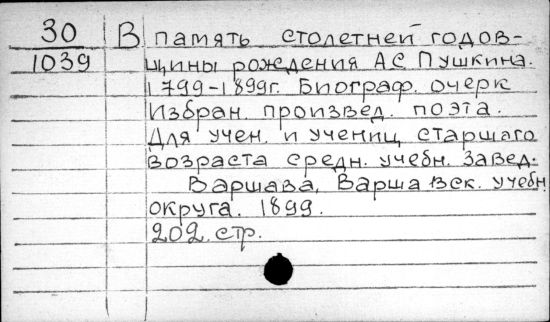 30 В память столетней годов-
1039 щины рождения А С Пушкина.
1799-1899г. Биограф. очерк
Избран. произвед. поэта.
Для учен. и учениц старшаго
возраста средн. учебн. завед.
Варшава, Варшавск. учебн.
округа. 1899.
202. стр.